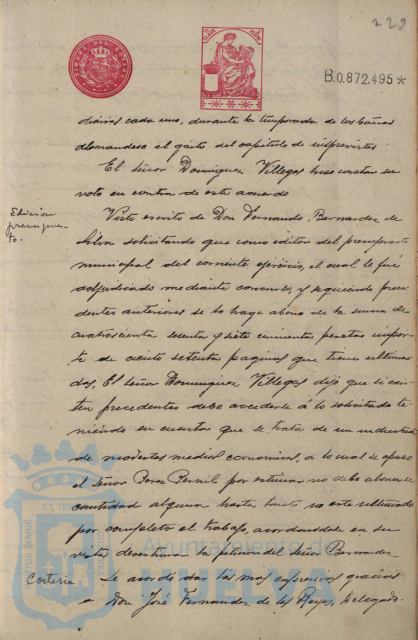 229
B.0.872.495*
diarias cada uno, durante la temporada de los baños
el gasto del capítulo de imprevistos
El señor Dominguez Villegas hizo constar su
voto en contra de este acuerdo
Edicion
presupues-
to.
Visto escrito de Don Fernando Bernardez de
Silva solicitando que como editor del presupuesto
municipal del corriente ejercicio, el cual le fué
adjudicado mediante concurso, y siguiendo prece
dentes anteriores se le haga abono de la suma de
cuatrocientas sesenta y siete cincuenta pesetas impor
te de ciento setenta paginas que tiene ultima
das, El señor Dominguez Villegas dijo que si exis
ten precedentes debe accederse á lo solicitado te
niendo en cuenta que se trata de un industrial
de modestos medios economicos, a lo cual se opuso
el señor Perez Pernil por estimar no debe abonarse
cantidad alguna hasta tanto no este ultimado
por completo el trabajo, acordandose en su
vista desestimar la peticion del señor Bernardez
Cortesia
Se acordó dar las mas expresivas gracias
a Don José Fernandez de los Reyes, Delegado
Ayuntamiento de
HUELVA